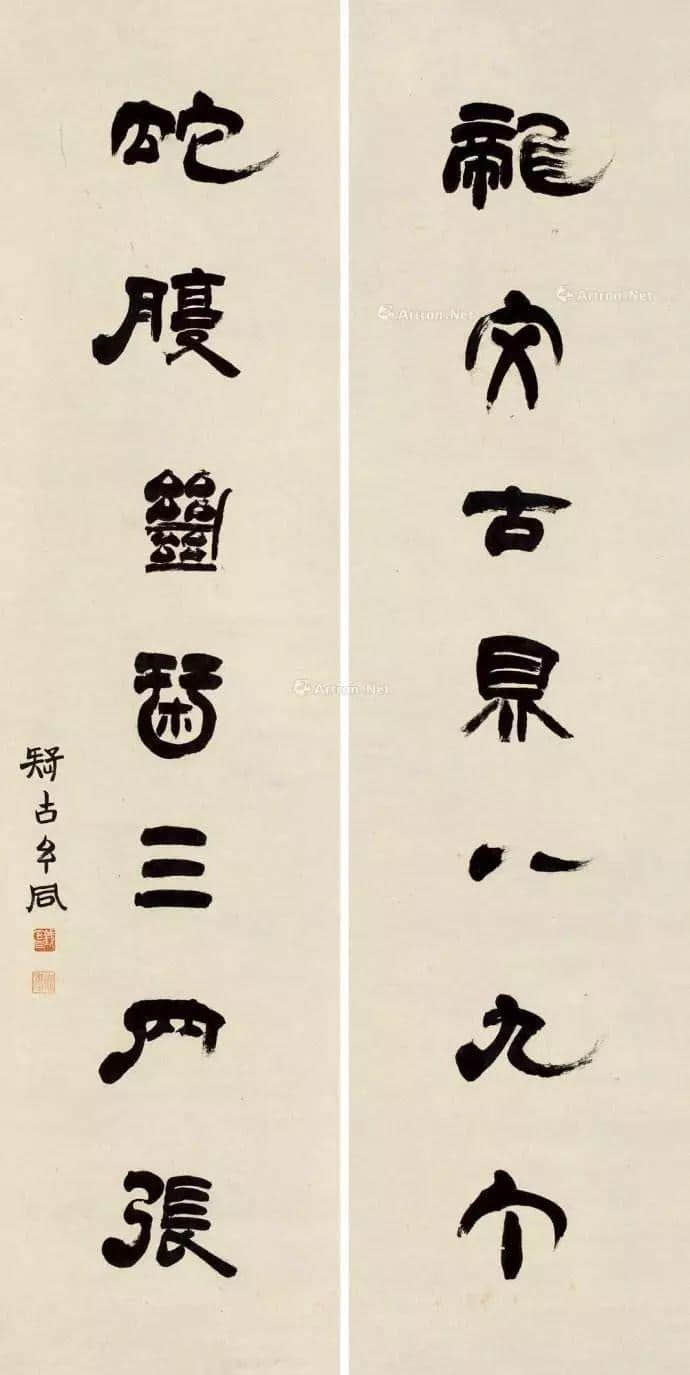 龍文古鼎八九个
蛇腹斷琴三兩張
疑古玄同
Artron.Net
Artron.Net
Artron.Net